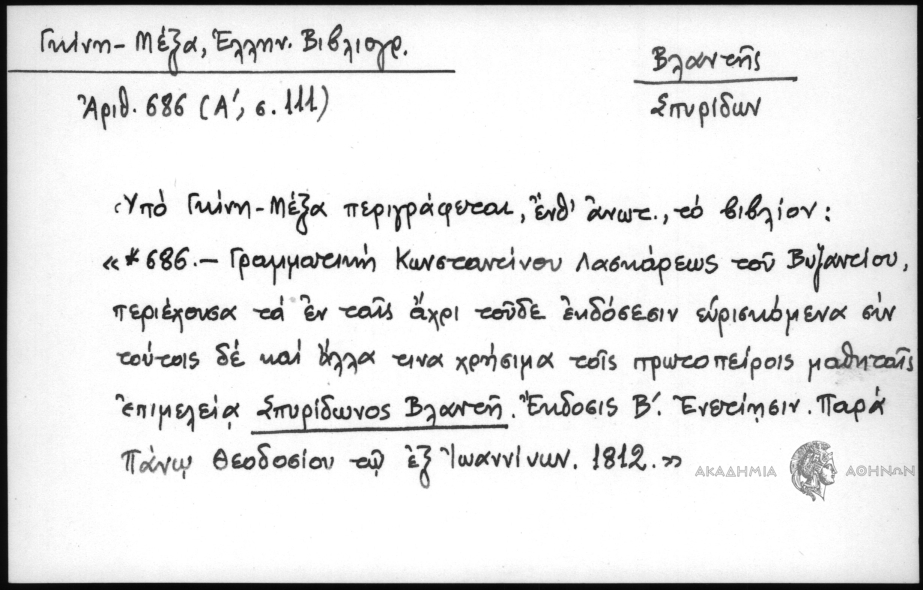 Γκίνη - Μέξα, Ἑλλην. Βιβλιογρ.
Ἀριθ. 686 (Α', σ. 111)
Βλαντῆς
Σπυρίδων
Ὑπό Γκίνη - Μέξα περιγράφεται, ἔνθ' ἀνωτ., τό βιβλίον:
« *686. — Γραμματική Κωνσταντίνου Λασκάρεως τοῦ Βυζαντίου,
περιέχουσα τά ἐν ταῖς ἄχρι τοῦδε ἐκδόσεσιν εὑρισκόμενα σύν
τούτοις δέ καί ἄλλα τινα χρήσιμα τοῖς πρωτοπείροις μαθηταῖς
ἐπιμελείᾳ Σπυρίδωνος Βλαντῆ. Ἔκδοσις Β'. Ἐνετίησιν. Παρά
Πάνῳ Θεοδοσίου τῷ ἐξ Ἰωαννίνων. 1812. »
ΑΚΑΔΗΜΙΑ ΑΘΗΝΩΝ